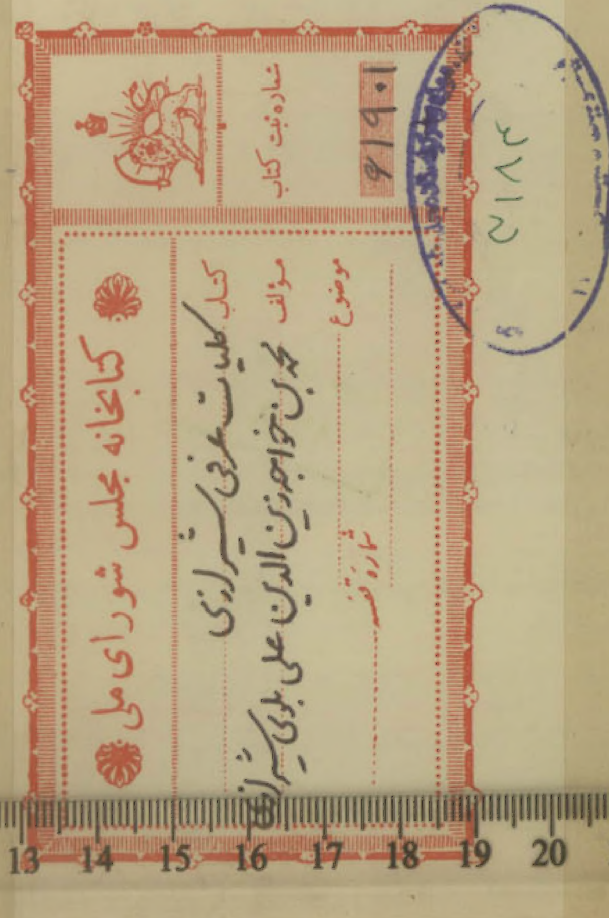 کتابخانه مجلس شورای ملی
کتاب کلیات عرفی شیرازی
مؤلف محمد بن خواجه زین الدین علی بلوی شیرازی
موضوع
شماره قفسه
شماره ثبت کتاب
۹۱۹۰۱
13 14 15 16 17 18 19 20